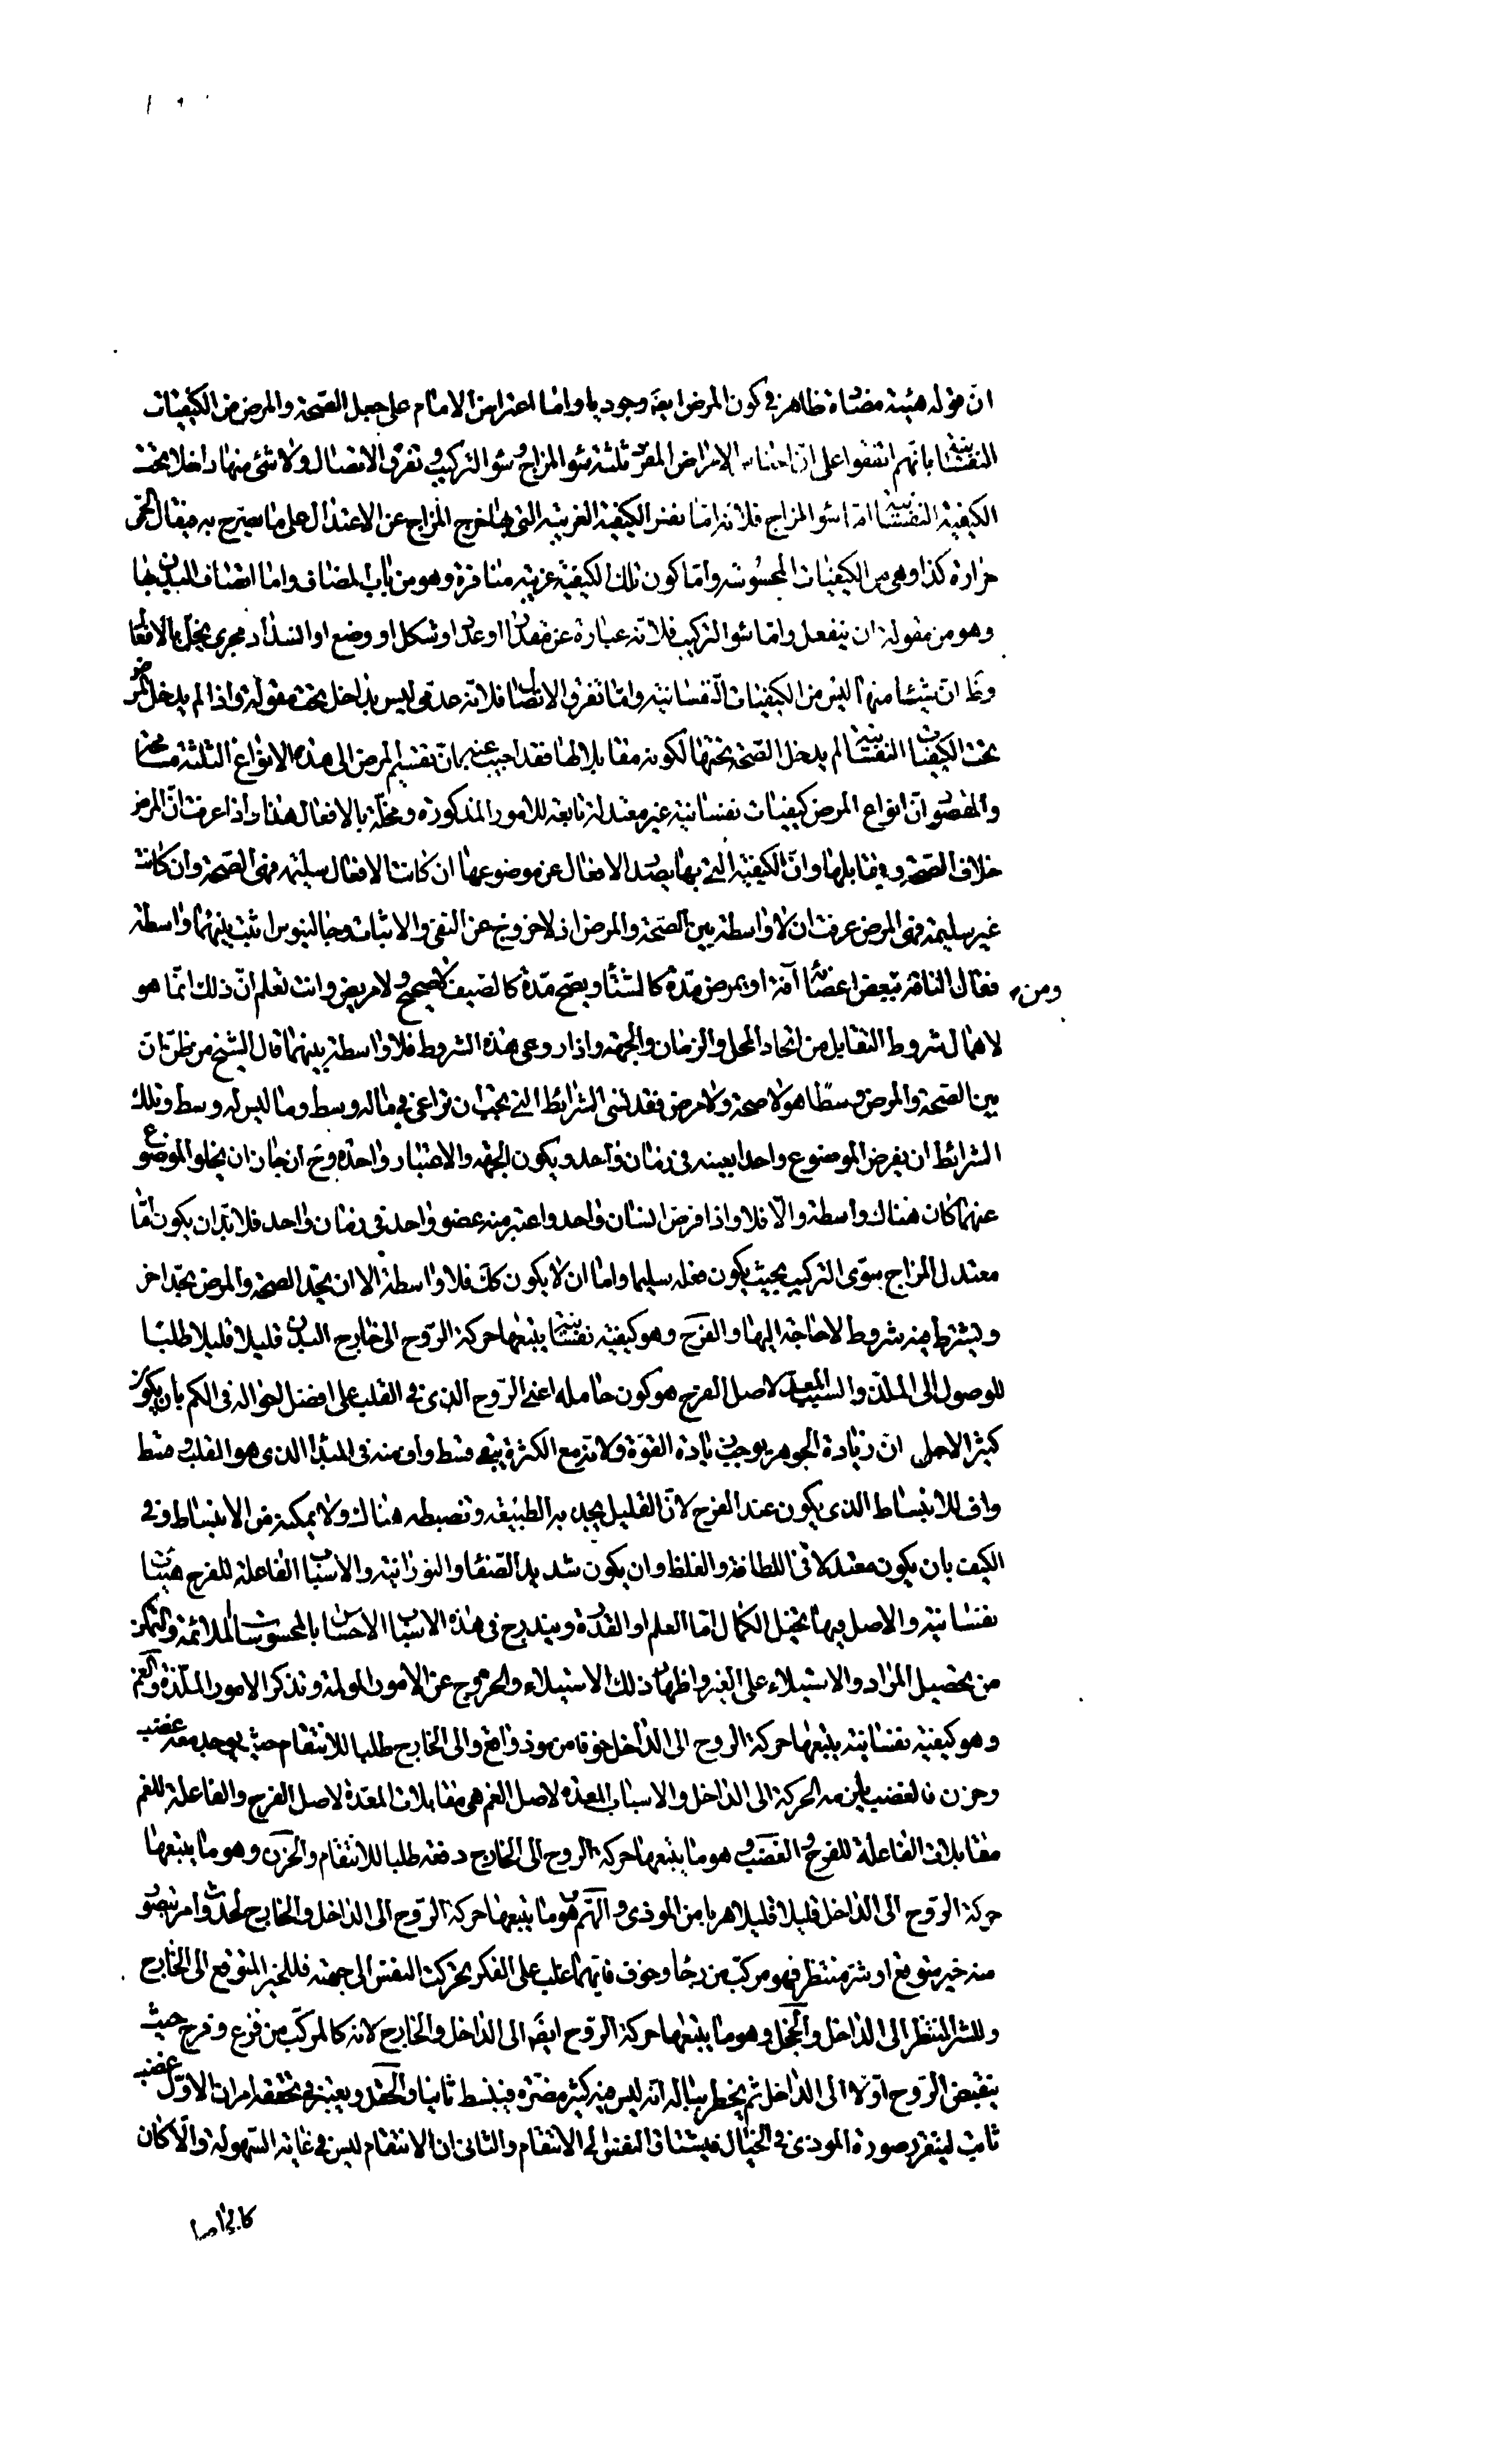 ان قوله هيئة مضادة ظاهر في كون المرض ايضا وجوديا واما اعتراض الامام على جعل الصحة والمرض من الكيفيات
النفسانية بانهم اتفقوا على ان اجناس الامراض المفردة ثلثة سوء المزاج وسوء التركيب وتفرق الاتصال ولا شئ منها داخلا تحت
الكيفية النفسانية اما سوء المزاج فلانه اما نفس الكيفية الغريبة التي بها خرج المزاج عن الاعتدال على ما يصرح به فيقال الحمى
حرارة كذا وهي من الكيفيات المحسوسة واما كون تلك الكيفية غريبة منافرة وهو من باب المضاف واما اتصاف البدن بها
وهو من مقولة ان ينفعل واما سوء التركيب فلانه عبارة عن مقدار او عدد او شكل او وضع او انسداد مجرى يخل بالافعال
وظ ان شيئا منها ليس من الكيفيات النفسانية واما تفرق الاتصال فلانه عدمي ليس بداخل تحت مقولة واذا لم يدخل المرض
تحت الكيفيات النفسانية لم يدخل الصحة تحتها لكونه مقابلا لها فقد اجيب عنه بان تقسيم المرض الى هذه الانواع الثلثة مسامحة
والمقصود ان انواع المرض كيفيات نفسانية غير معتدلة تابعة للامور المذكورة ومخلة بالافعال هذا واذا عرفت ان المرض
خلاف الصحة ويقابلها وان الكيفية التي بها يصدر الافعال عن موضوعها ان كانت الافعال سليمة فهي الصحة وان كانت
غير سليمة فهي المرض عرفت ان لا واسطة بين الصحة والمرض اذ لا خروج عن النفي والاثبات وجالينوس اثبت بينهما واسطة
فقال الناقه ومن ببعض اعضائه آفة او يمرض مدة كالشتاء ويصح مدة كالصيف لا صحيح ولا مريض وانت تعلم ان ذلك انما هو
لاهمال شروط التقابل من اتحاد المحل والزمان والجهة واذا روعى هذه الشروط فلا واسطة بينهما قال الشيخ من ظن ان
بين الصحة والمرض وسطا هو لا صحة ولا مرض فقد نسى الشرائط التي يجب ان تراعى في ما له وسط وما ليس له وسط وتلك
الشرائط ان يفرض الموضوع واحدا بعينه في زمان واحد ويكون الجهة والاعتبار واحدة وح ان جاز ان يخلو الموضوع
عنهما كان هناك واسطة والا فلا واذا فرض انسان واحد واعتبر منه عضو واحد في زمان واحد فلا بد ان يكون اما
معتدل المزاج سوى التركيب بحيث يكون فعله سليما واما ان لا يكون كك فلا واسطة الا ان يحد الصحة والمرض بحد اخر
ويشترط فيه شروط لا حاجة اليها والفرح وهو كيفية نفسانية يتبعها حركة الروح الى خارج البدن قليلا قليلا طلبا
للوصول الى الملذ والسبب المعد لاصل الفرح هو كون حامله اعنى الروح الذي في القلب على افضل احواله في الكم بان يكون
كثيرا لاجل ان زيادة الجوهر يوجب زيادة القوة ولانه مع الكثرة يبقى قسط واف منه في المبدأ الذي هو القلب وقسط
واف للانبساط الذي يكون عند الفرح لان القليل يجدبه الطبيعة وتضبطه هناك ولا يمكنه من الانبساط وفي
الكيف بان يكون معتدلا في اللطافة والغلظ وان يكون شديد الصفاء والنورانية والاسباب الفاعلة للفرح هيئات
نفسانية والاصل فيها تخيل الكمال اما العلم او القدرة ويندرج في هذه الاسباب الاحساس بالمحسوسات الملائمة والتمكن
من تحصيل المراد والاستيلاء على الغير واظهار ذلك الاستيلاء والخروج عن الامور المولمة وتذكر الامور الملذة والغم
وهو كيفية نفسانية يتبعها حركة الروح الى الداخل خوفا من موذ واقع والى الخارج طلبا للانتقام حيث يوجد معه غضب
وحزن فالغضب يلزمه الحركة الى الداخل والاسباب المعدة لاصل الغم هي مقابلات المعدة لاصل الفرح والفاعلة للغم
مقابلات الفاعلة للفرح والغضب وهو ما يتبعها حركة الروح الى الخارج دفعة طلبا للانتقام والحزن وهو ما يتبعها
حركة الروح الى الداخل قليلا قليلا هربا من الموذي والهم وهو ما يتبعها حركة الروح الى الداخل والخارج لحدوث امر يتصور
منه خير متوقع او شر منتظر فهو مركب من رجاء وخوف فايهما غلب على الفكر تحركت النفس الى جهته فللخير المتوقع الى الخارج
وللشر المنتظر الى الداخل والخجل وهو ما يتبعها حركة الروح ايضا الى الداخل والخارج لانه كالمركب من فزع وفرح حيث
ينقبض الروح اولا الى الداخل ثم يخطر بباله انه ليس فيه كثير مضرة فينبسط ثانيا والحقد ويعتبر في تحققه امران الاول غضب
ثابت ليتقرر صورة الموذي في الخيال فيشتاق النفس الى الانتقام والثاني ان الانتقام ليس في غاية السهولة والا كان